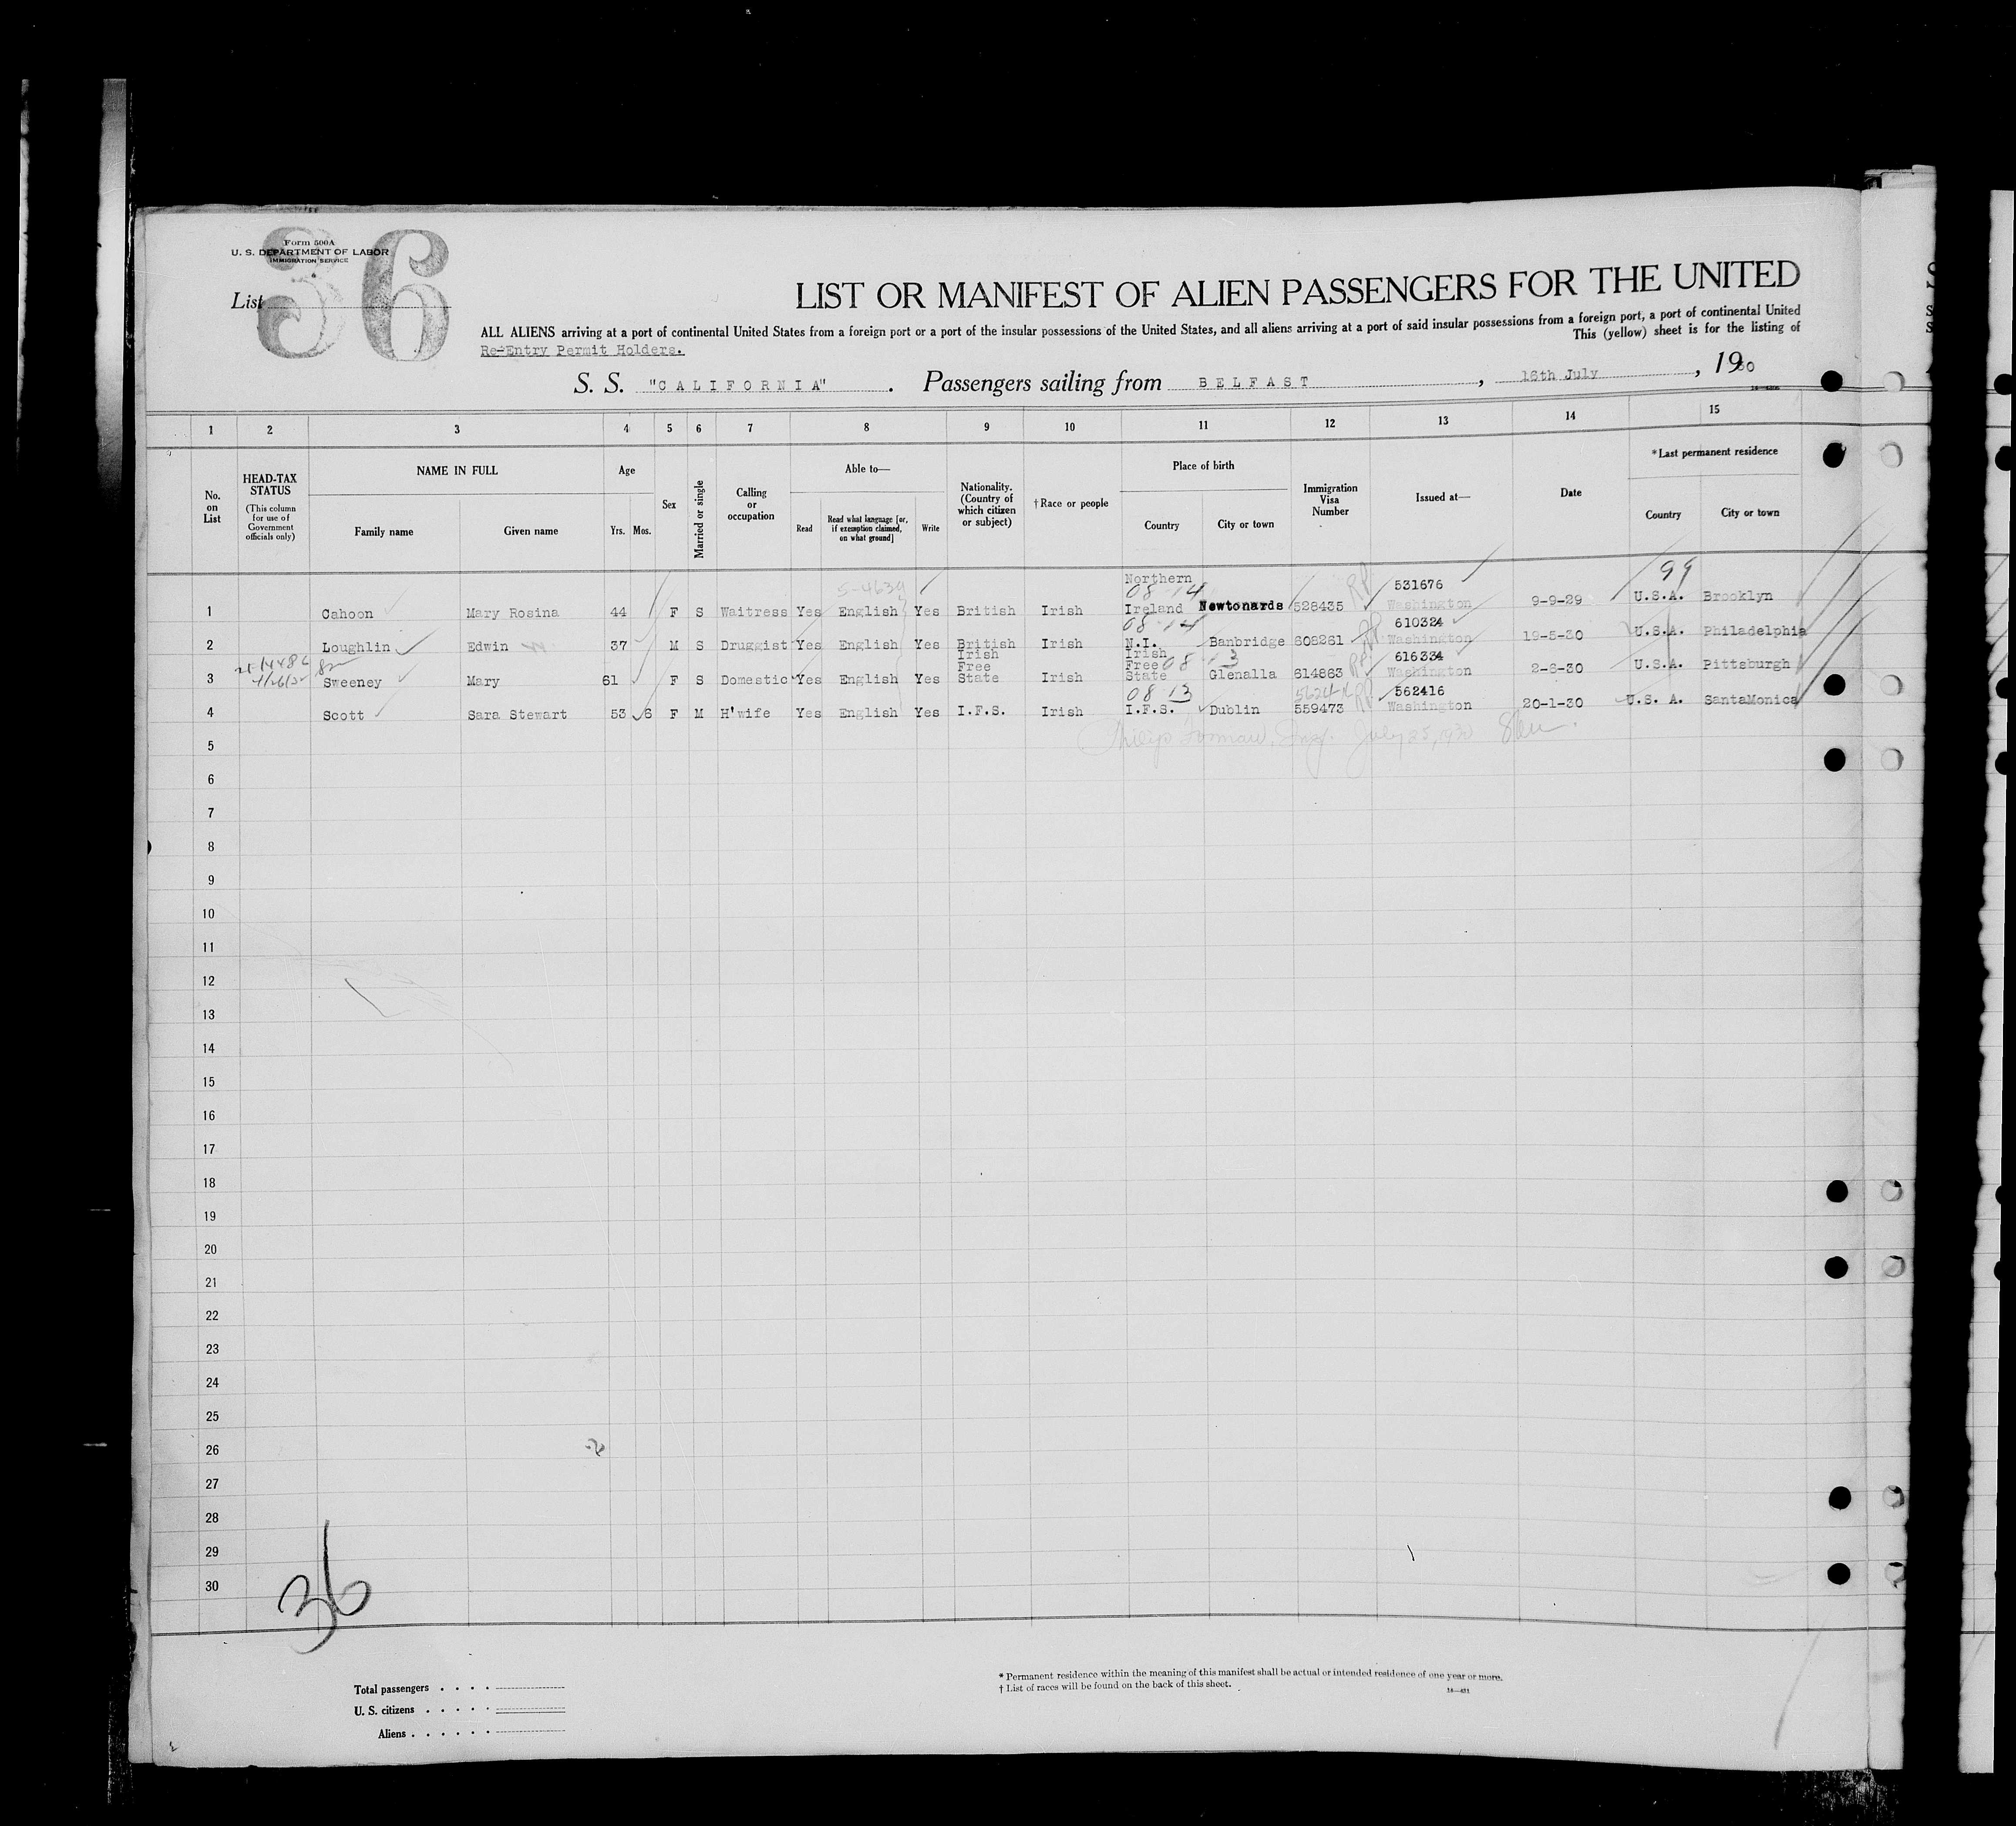 Form 500A
U. S. DEPARTMENT OF LABOR
IMMIGRATION SERVICE
List 36
LIST OR MANIFEST OF ALIEN PASSENGERS FOR THE UNITED
ALL ALIENS arriving at a port of continental United States from a foreign port or a port of the insular possessions of the United States, and all aliens arriving at a port of said insular possessions from a foreign port, a port of continental United
This (yellow) sheet is for the listing of
Re-Entry Permit Holders.
S. S. "CALIFORNIA" . Passengers sailing from BELFAST , 16th July , 1930
1 2 3 4 5 6 7 8 9 10 11 12 13 14 15
No. on List
HEAD-TAX STATUS
(This column for use of Government officials only)
NAME IN FULL
Family name Given name
Age
Yrs. Mos.
Sex
Married or single
Calling or occupation
Able to—
Read
Read what language [or, if exemption claimed, on what ground]
Write
Nationality. (Country of which citizen or subject)
† Race or people
Place of birth
Country City or town
Immigration Visa Number
Issued at—
Date
* Last permanent residence
Country City or town
5-4639 Northern 08-14 531676 99
1 Cahoon Mary Rosina 44 F S Waitress Yes English Yes British Irish Ireland Newtonards 528435 Washington 9-9-29 U.S.A. Brooklyn
08-14 610324
2 Loughlin Edwin 37 M S Druggist Yes English Yes British Irish N.I. Banbridge 608261 Washington 19-5-30 U.S.A. Philadelphia
Irish Free Irish Free 08-13 616334
3 Sweeney Mary 61 F S Domestic Yes English Yes State Irish State Glenalla 614863 Washington 2-6-30 U.S.A. Pittsburgh
08-13 562416
4 Scott Sara Stewart 53 6 F M H'wife Yes English Yes I.F.S. Irish I.F.S. Dublin 559473 Washington 20-1-30 U.S. A. SantaMonica
5 Philip Forman, Insp. July 25, 1930
6
7
8
9
10
11
12
13
14
15
16
17
18
19
20
21
22
23
24
25
26
27
28
29
30
36
Total passengers . . . .
U. S. citizens . . . . .
Aliens . . . . . .
* Permanent residence within the meaning of this manifest shall be actual or intended residence of one year or more.
† List of races will be found on the back of this sheet.